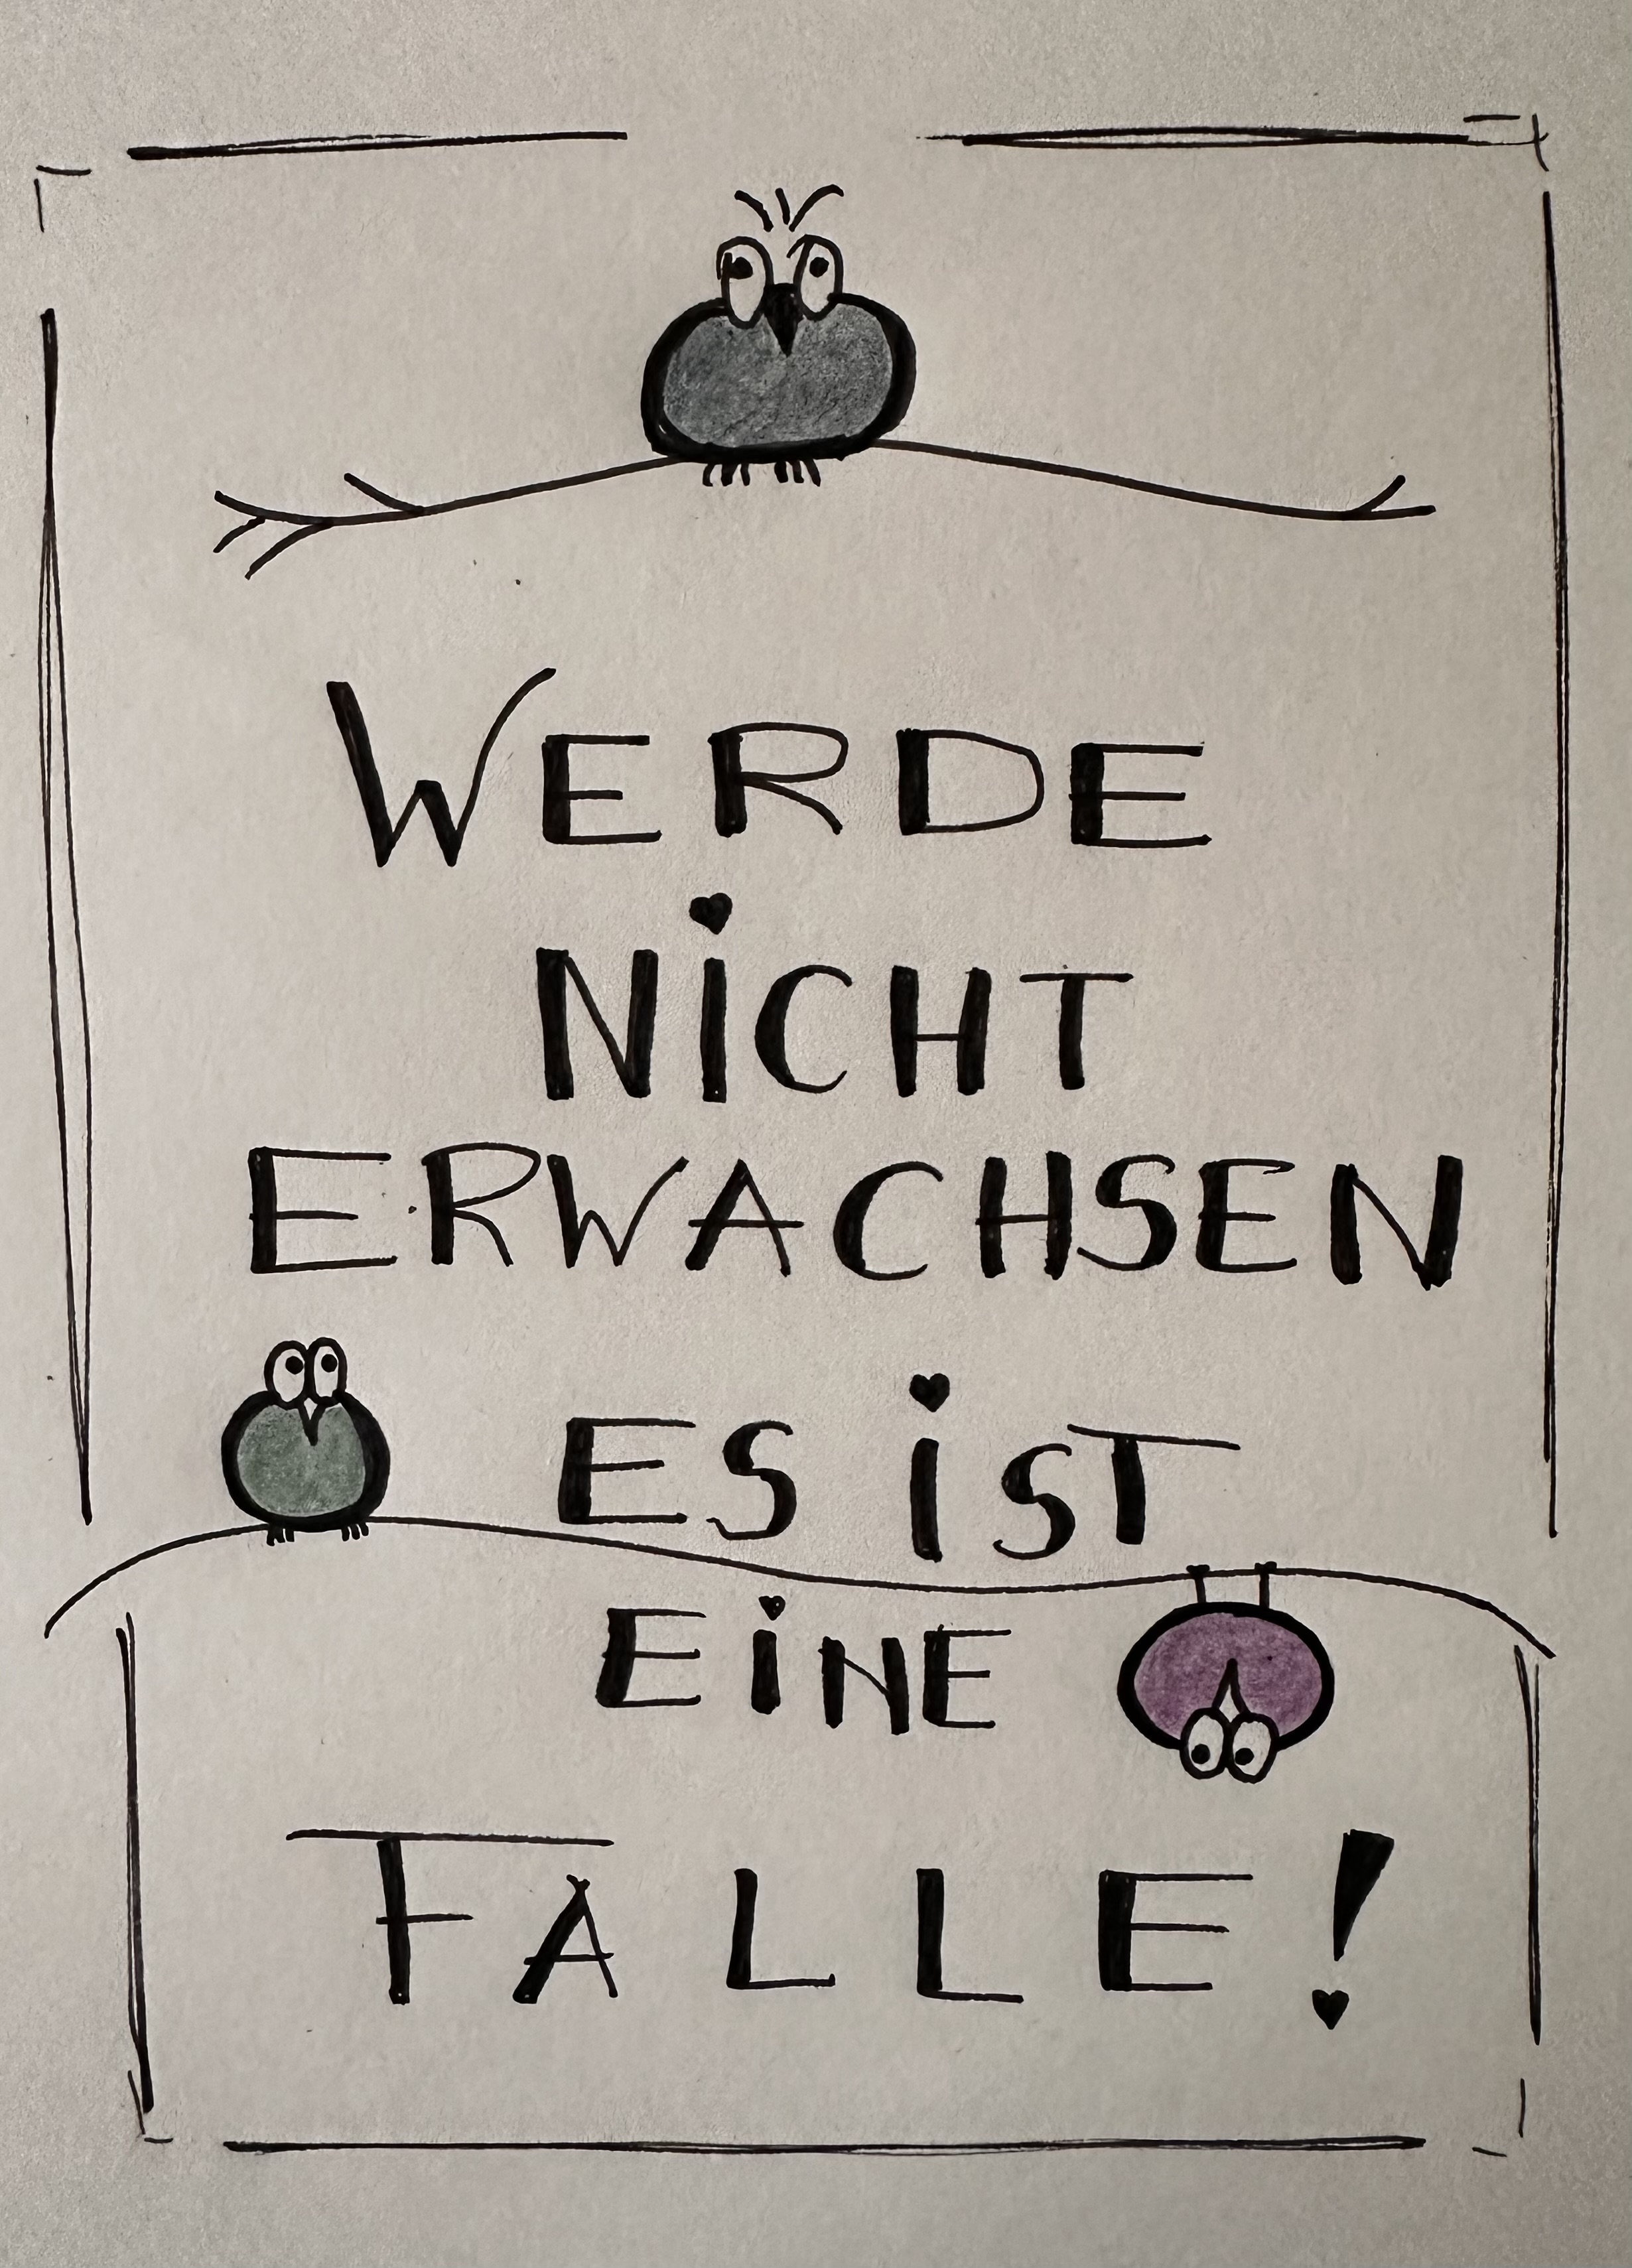 WERDE
NiCHT
ERWACHSEN
ES iST
EiNE
FALLE!